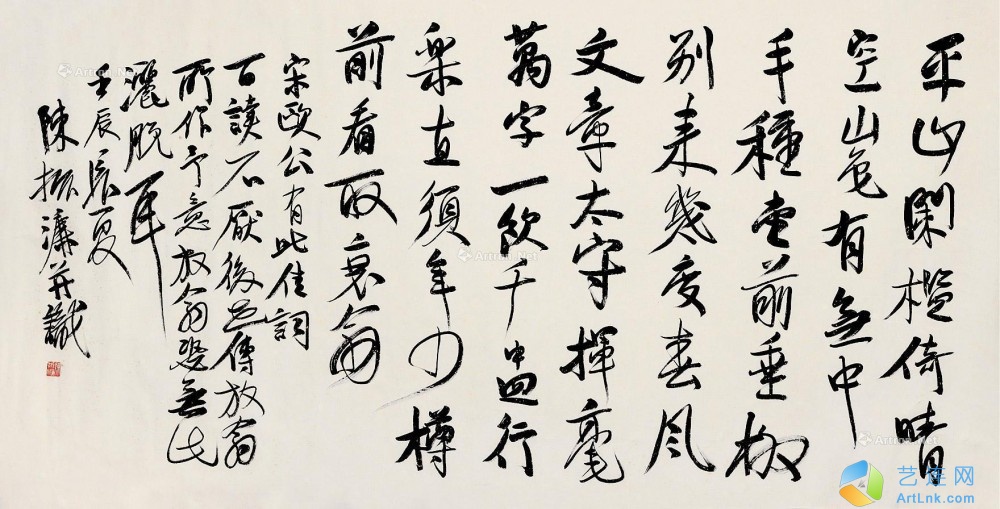 平山闌檻倚晴
空山色有無中
手種堂前垂柳
別来幾度春風
文章太守揮毫
萬字一飲千盅行
樂直須年少樽
前看取衰翁
宋歐公有此佳詞
百讀不厭後世傳放翁
所作予意放翁恐無此
灑脫耳
壬辰長夏
陳振濂并識
艺连网
ArtLnk.com